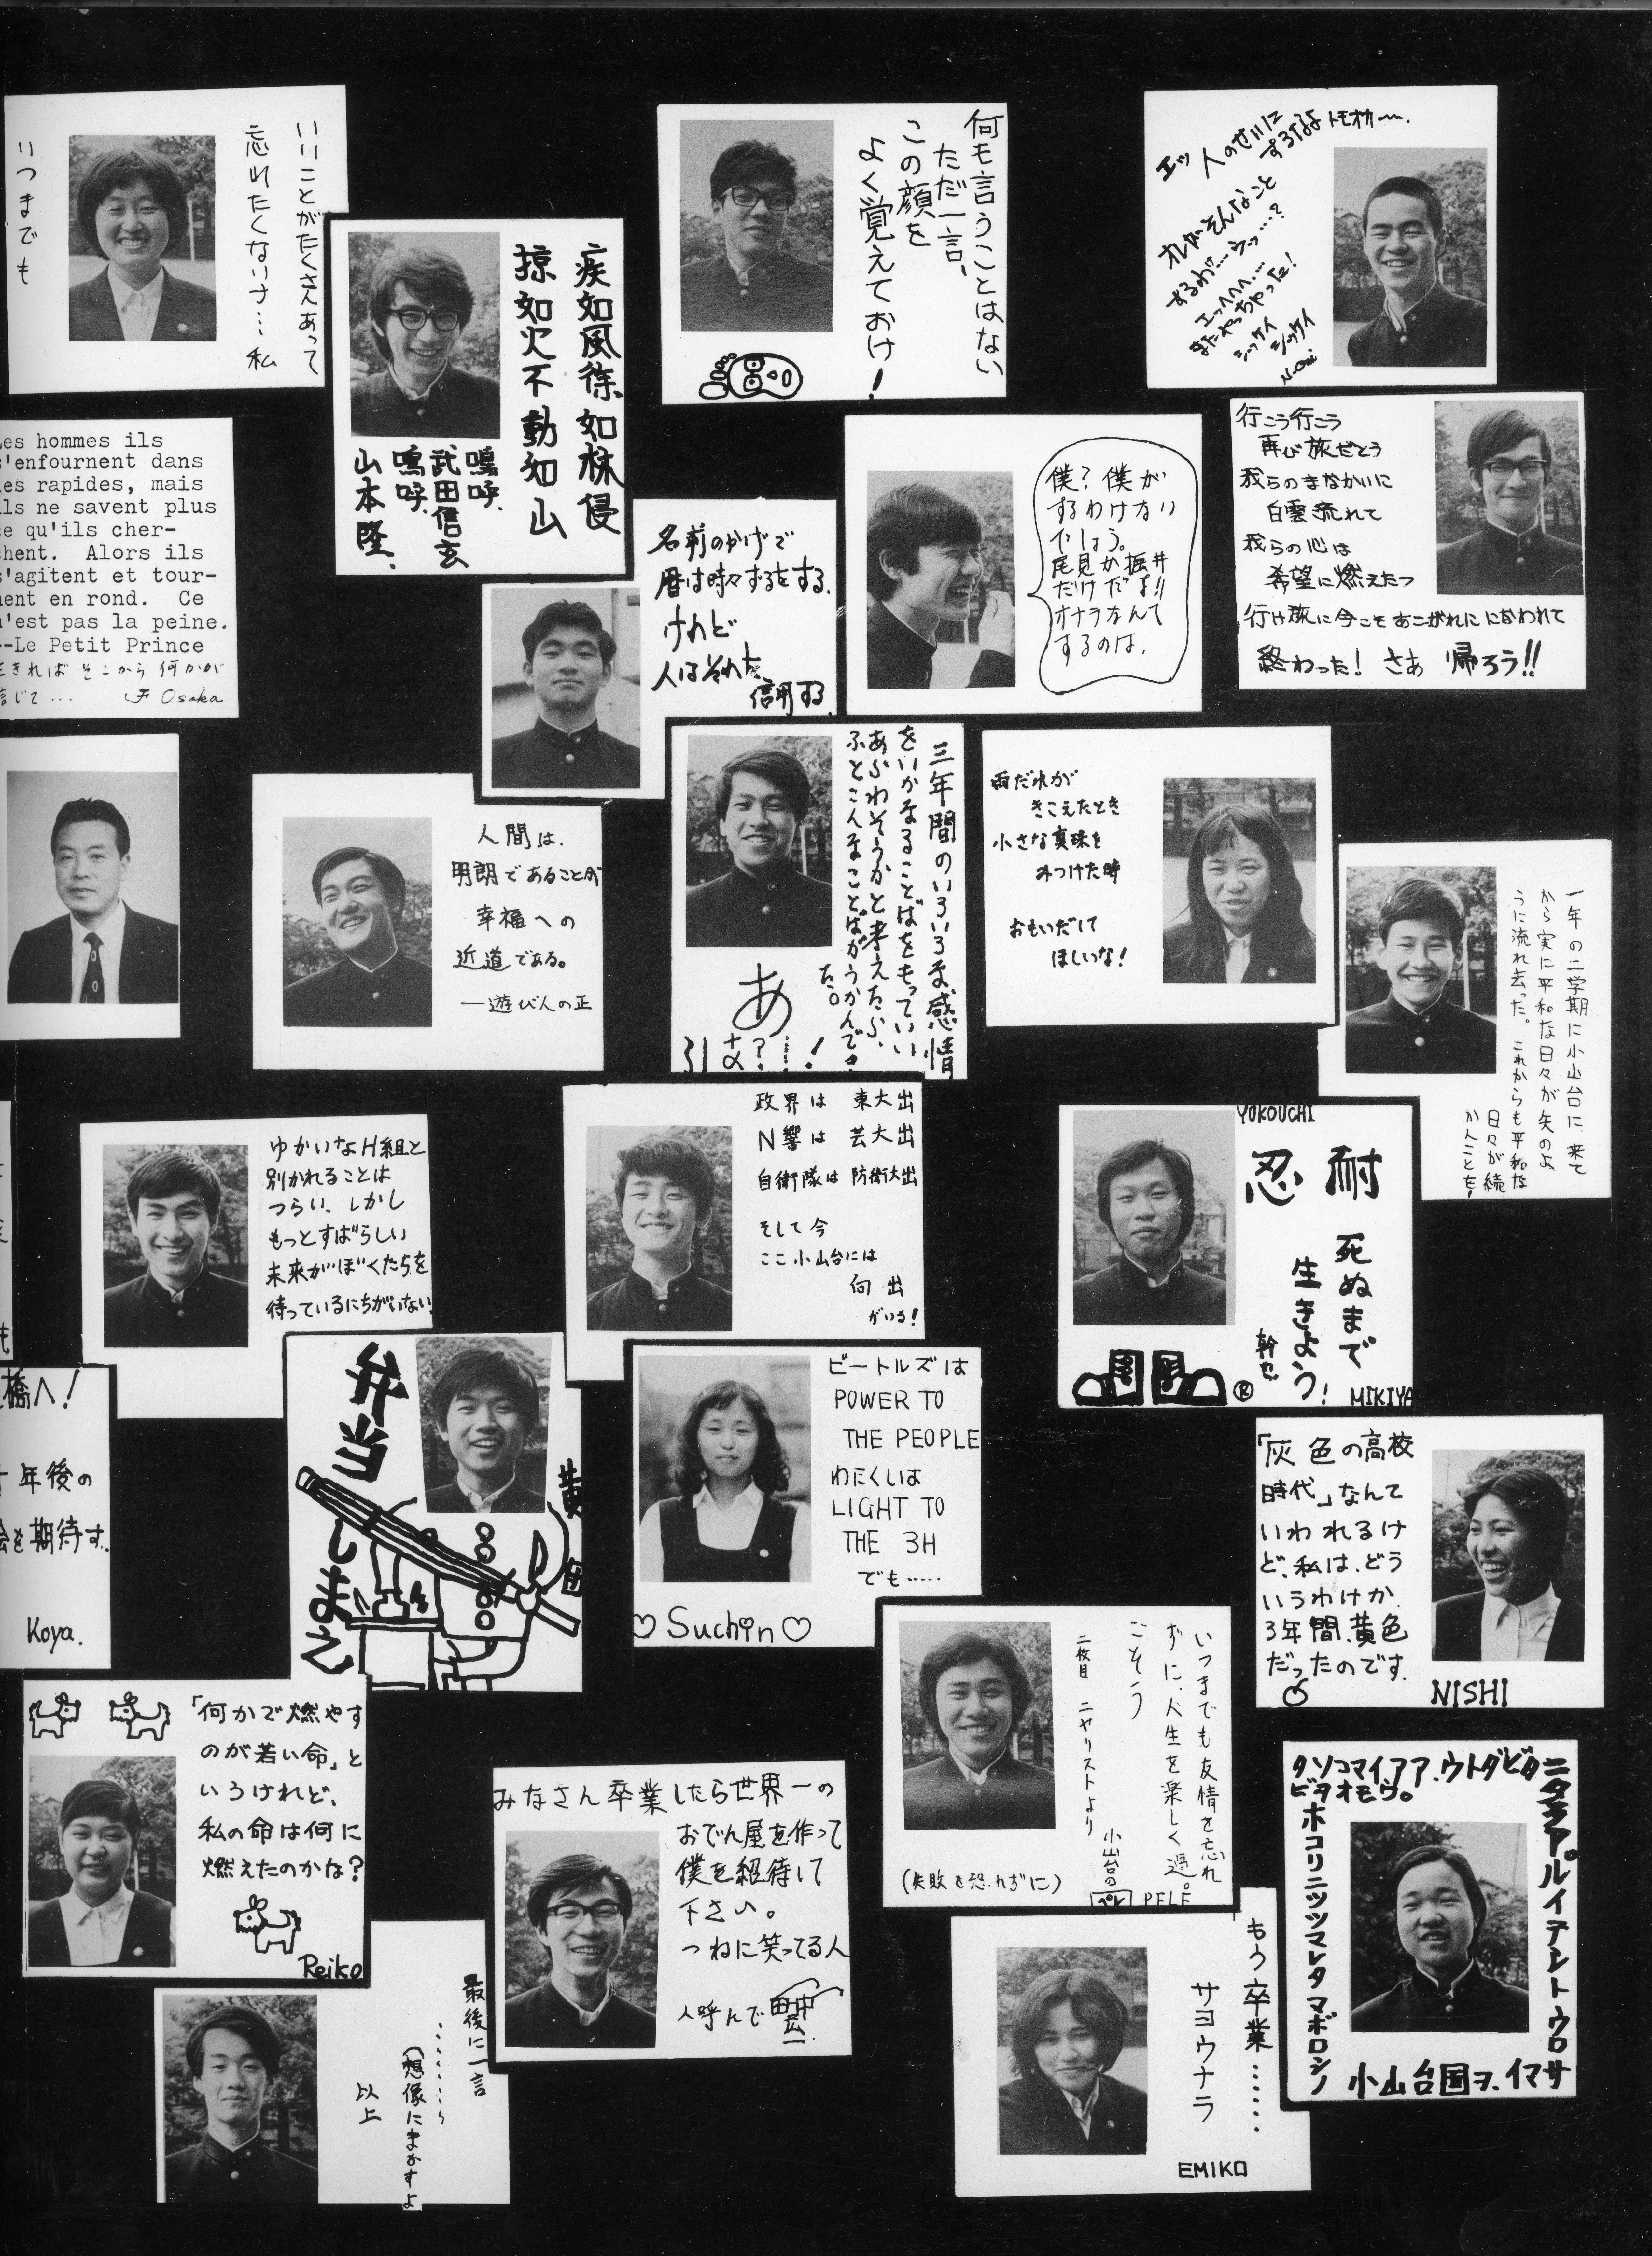 いいことがたくさんあって
忘れたくないナ…私
いつまでも
疾如風徐如林侵
掠如火不動如山
嗚呼、
武田信玄
嗚呼、
山本隆、
何も言うことはない
ただ一言、
この顔を
よく覚えておけ!
エッ 人のせいに
するなよ トモオカ〜.
オレがそんなこと
するわ…ウッ…?
エッヘヘヘ…
またやっちゃった!
シッケイ
シッケイ
Les hommes ils
s'enfournent dans
les rapides, mais
ils ne savent plus
ce qu'ils cher-
chent. Alors ils
s'agitent et tour-
nent en rond. Ce
n'est pas la peine.
--Le Petit Prince
できれば そこから 何かが
信じて… Osaka
名前のかげで
暦は時々ずるをする.
けれど
人はそれを
信用する.
僕? 僕が
するわけない
でしょう。
尾見か堀井
だけだよ!!
オナラなんて
するのは.
行こう行こう
再び旅だとう
我らのまなかいに
白雲流れて
我らの心は
希望に燃えたつ
行け旅に今こそあこがれににないわれて
終わった! さあ 帰ろう!!
人間は.
明朗であることが
幸福への
近道である。
—遊び人の正
三年間のいろいろな感情
をいかなることばをもっていい
あらわそうかと考えたら、
ふとこんなことばがうかんで
た。
あ
な?…!
雨だれが
きこえたとき
小さな真珠を
みつけた時
おもいだして
ほしいな!
一年の二学期に小山台に来て
から実に平和な日々が矢のよ
うに流れ去った。これからも平和な
日々が続
かんことを!
ゆかいなH組と
別かれることは
つらい、しかし
もっとすばらしい
未来がぼくたちを
待っているにちがいない
政界は 東大出
N響は 芸大出
自衛隊は 防衛大出
そして今
ここ小山台には
向出
がいる!
YOKOUCHI
耐
忍
死ぬまで
生きよう!
幹也
®
MIKIYA
橋へ!
十年後の
会を期待す.
Koya.
弁当
しまえ
黄
団
ビートルズは
POWER TO
THE PEOPLE
わたくしは
LIGHT TO
THE 3H
でも……
♡ Suchin ♡
「灰色の高校
時代」なんて
いわれるけ
ど、私は、どう
いうわけか.
3年間、黄色
だったのです.
NISHI
「何かで燃やす
のが若い命」と
いうけれど、
私の命は何に
燃えたのかな?
Reiko
みなさん卒業したら世界一の
おでん屋を作って
僕を招待して
下さい。
つねに笑ってる人
人呼んで
いつまでも友情を忘れ
ずに、人生を楽しく過
ごそう。
二枚目 ニヤリストより
小山台の
ペレ PELE
(失敗を恐れずに)
ニタアアルイテレトウロサ
タソコマイアア.ウトダビタ
ビヲオモウ。
ホコリニツツマレタマボロシノ
小山台国ヲ.イマサ
最後に一言
………
(想像にまかすよ
以上
もう卒業……
サヨウナラ
EMIKO